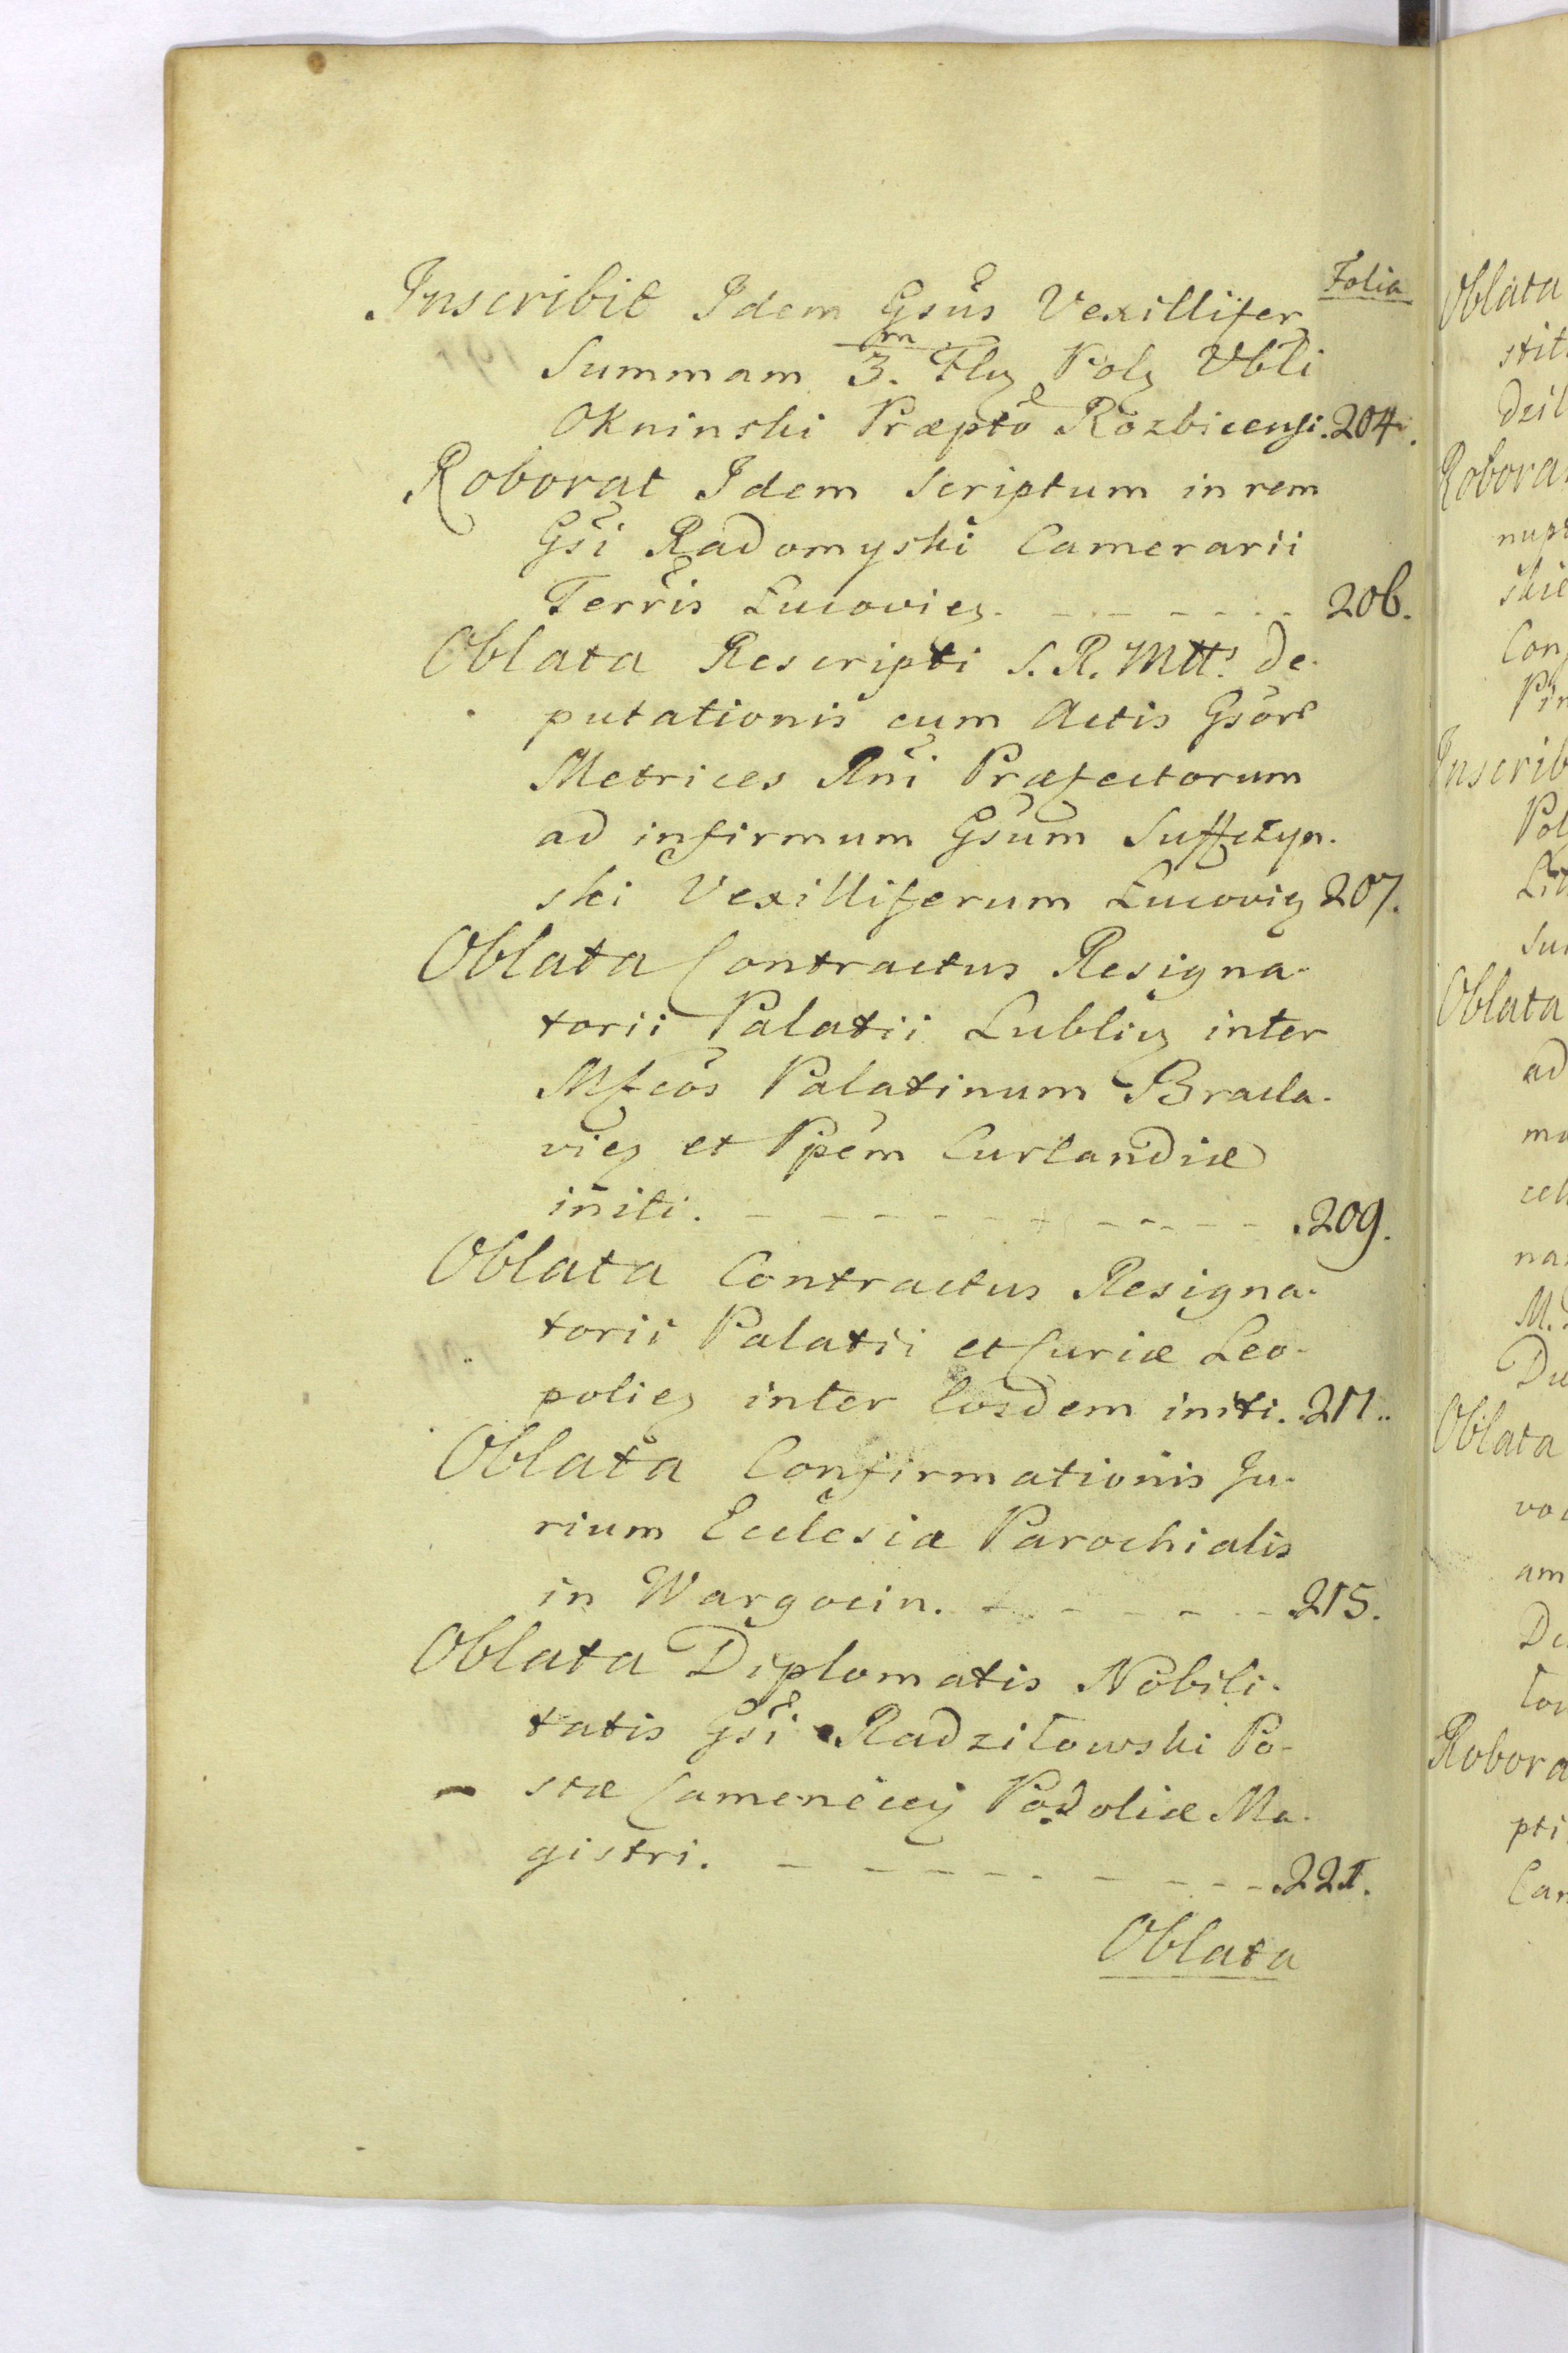 Folia
Inscribit Idem Gsus Vexillifer
Summam 3.m Flg Polg Vbli
Okninski Præpto Rozbicensi. 204.
Roborat Idem Scriptum in rem
Gsi Radomyski Camerarii
Terris Lucovieg. - - - - - - 206.
Oblata Rescripti S. R. Mtts. de-
putationis cum Actis Gsor
Metrices Rni Præfectorum
ad infirmum Gsum Suffczyn-
ski Vexilliferum Lucovig 207.
Oblata Contractus Resigna-
torii Palatii Lublig inter
Mfcos Palatinum Bracla-
vieg et Ppem Curlandiæ
initi. - - - - - - - - - - 209.
Oblata Contractus Resigna-
torii Palatii et Curiæ Leo-
polieg inter Eosdem initi. 211.
Oblata Confirmationis Ju-
rium Ecclesia Parochialis
in Wargocin. - - - - - - 215.
Oblata Diplomatis Nobili-
tatis Gsi Radziłowski Po-
stæ Camenecey Podoliæ Ma-
gistri. - - - - - - - - - 221.
Oblata
Oblata
Roborat
Inscrib
Oblata
ad
Oblata
am
Robora
pti